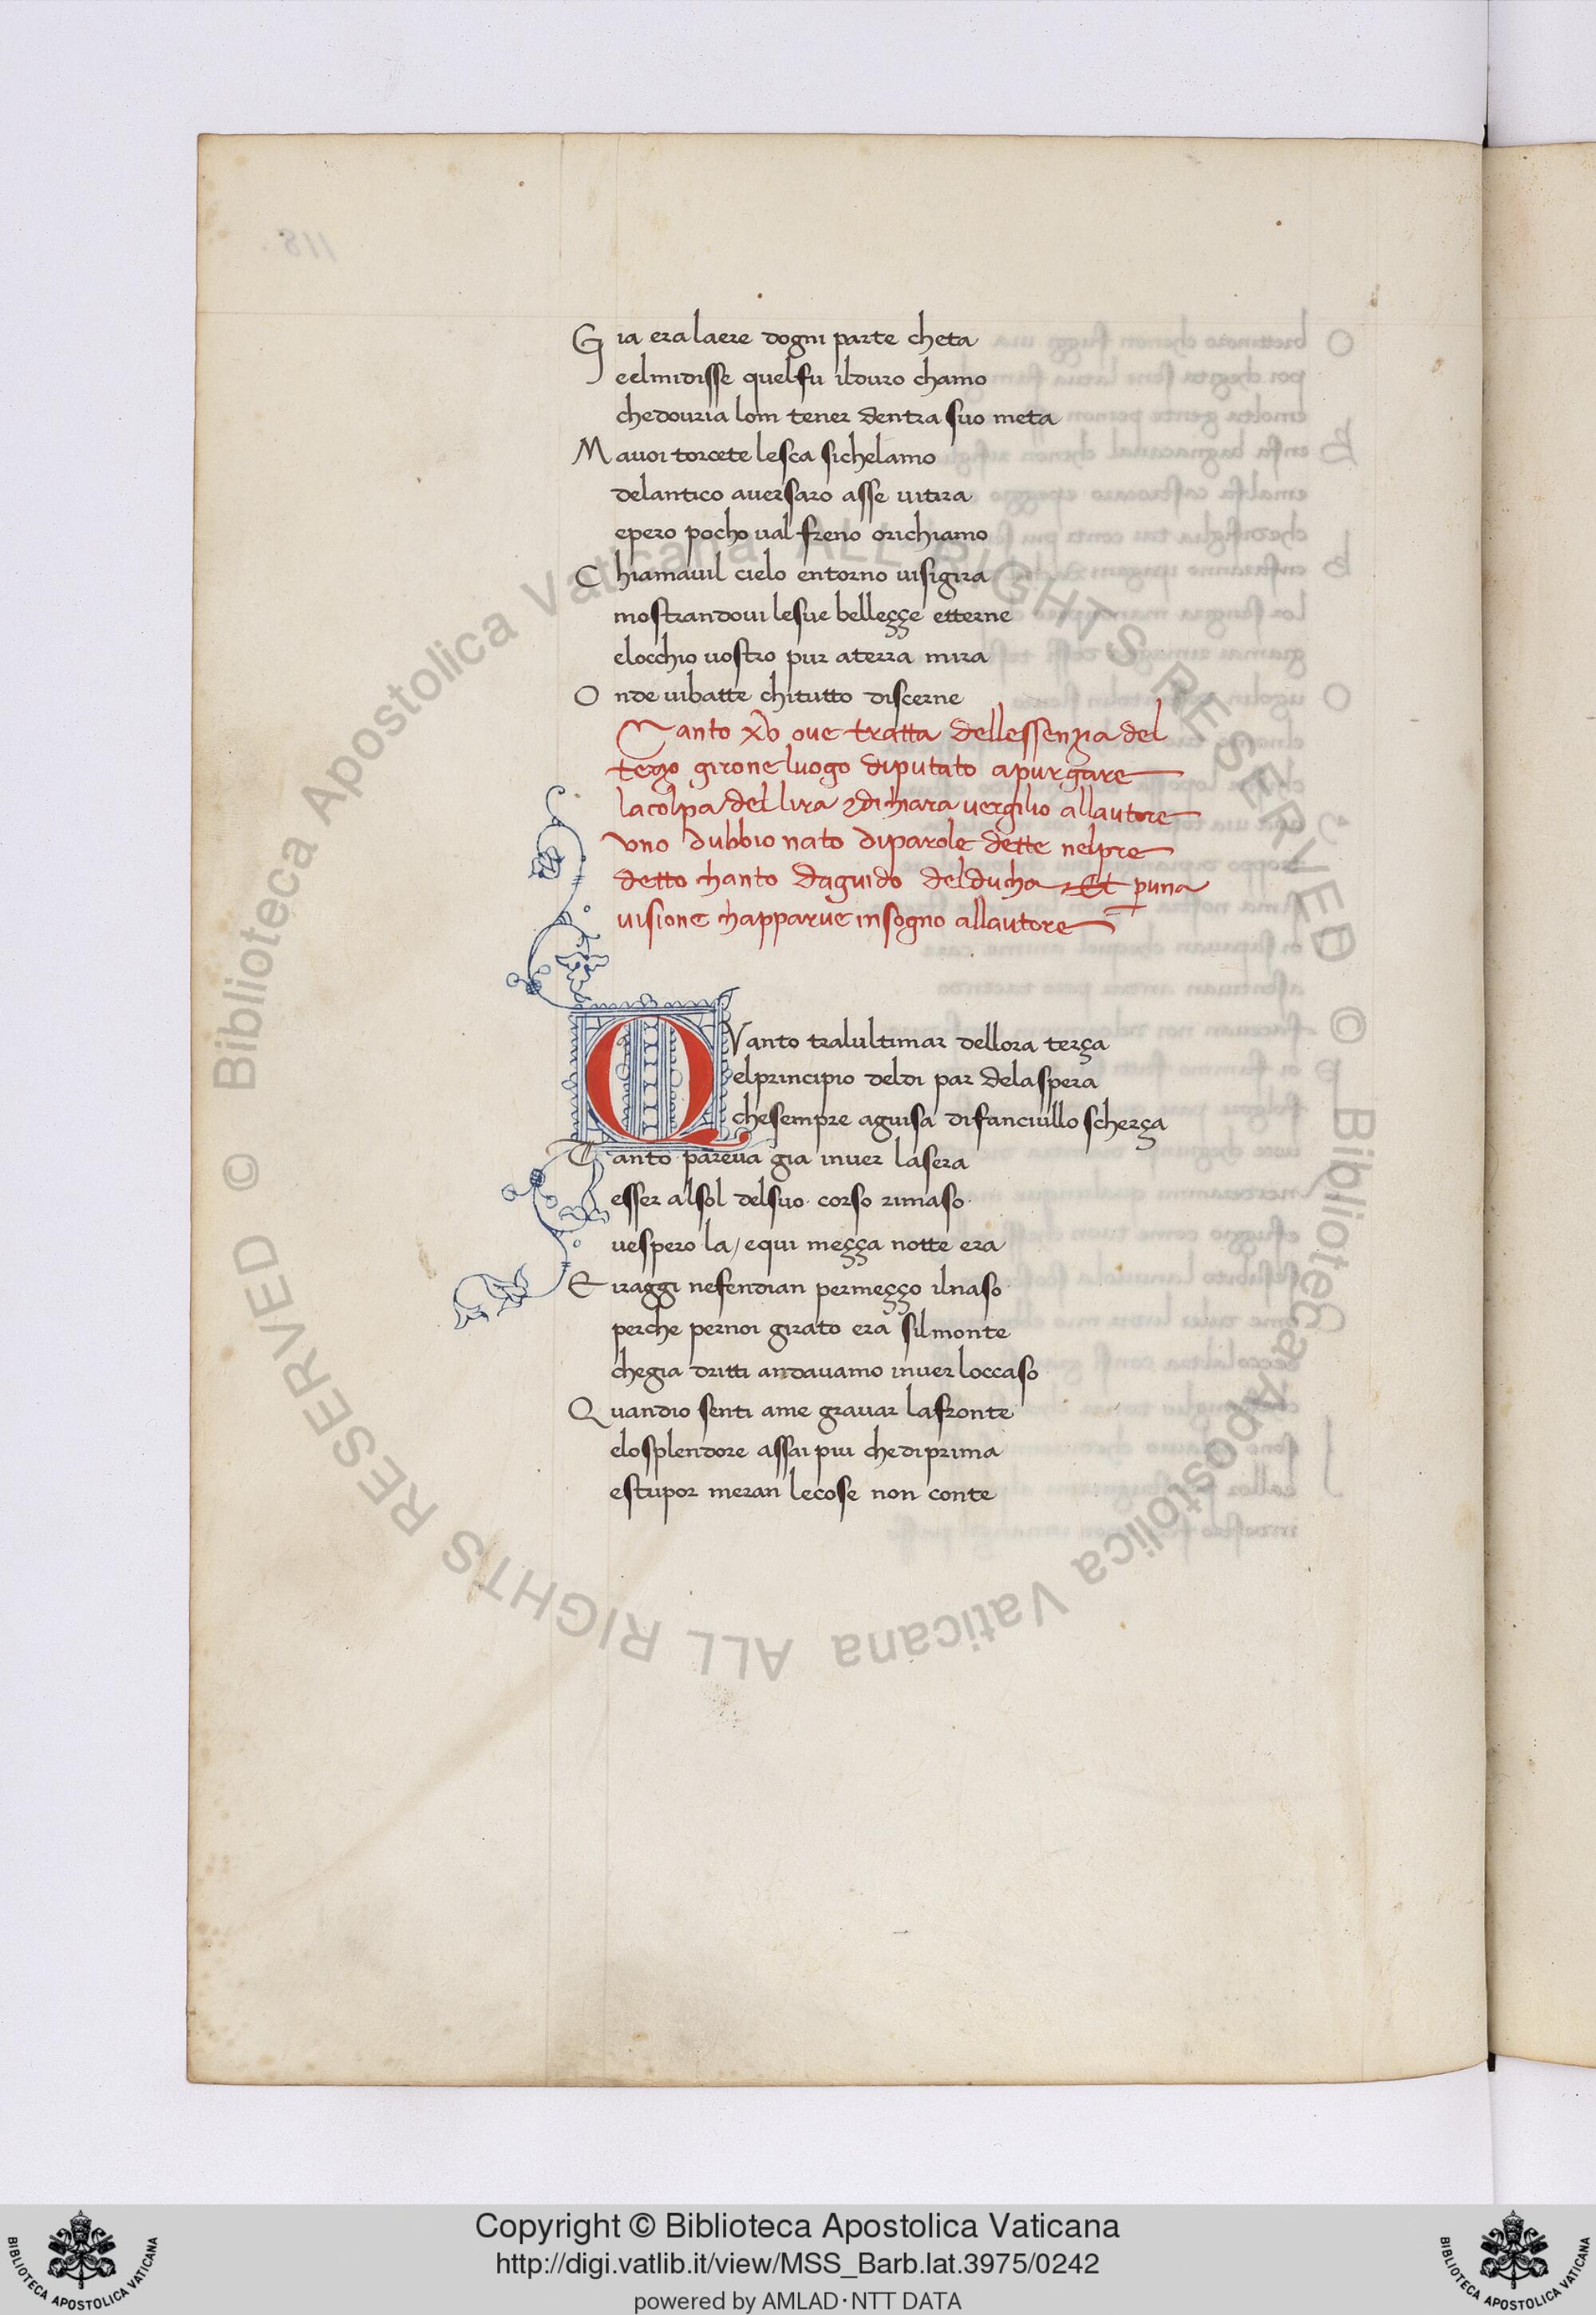 G ia era laere dogni parte cheta
eelmidisse quel fu ilduro chamo
chedouria lom tener dentra suo meta
M auoi torcete lesca sichelamo
delantico auersaro asse uitira
epero pocho ual freno orichiamo
C hiamauil cielo entorno uisigira
mostrandoui lesue belleççe etterne
elocchio uostro pur aterra mira
O nde uibatte chitutto discerne
Canto xv oue tratta dellessenzia del
terzo girone luogo diputato apurgare
lacolpa dellira & dichiara vergilio allautore
uno dubbio nato diparole dette nelpre
detto chanto daguido delducha Et puna
uisione chapparue insogno allautore
QVanto tralultimar dellora terça
elprincipio deldi par delaspera
chesempre aguisa difanciullo scherça
T anto pareua gia inuer lasera
esser alsol delsuo corso rimaso
uespero la / equi meçça notte era
E iraggi nefendian permeçço ilnaso
perche pernoi girato era silmonte
chegia dritti andauamo inuer loccaso
Q uandio senti ame grauar lafronte
elosplendore assai piu chediprima
estupor meran lecose non conte
Copyright © Biblioteca Apostolica Vaticana
http://digi.vatlib.it/view/MSS_Barb.lat.3975/0242
powered by AMLAD·NTT DATA